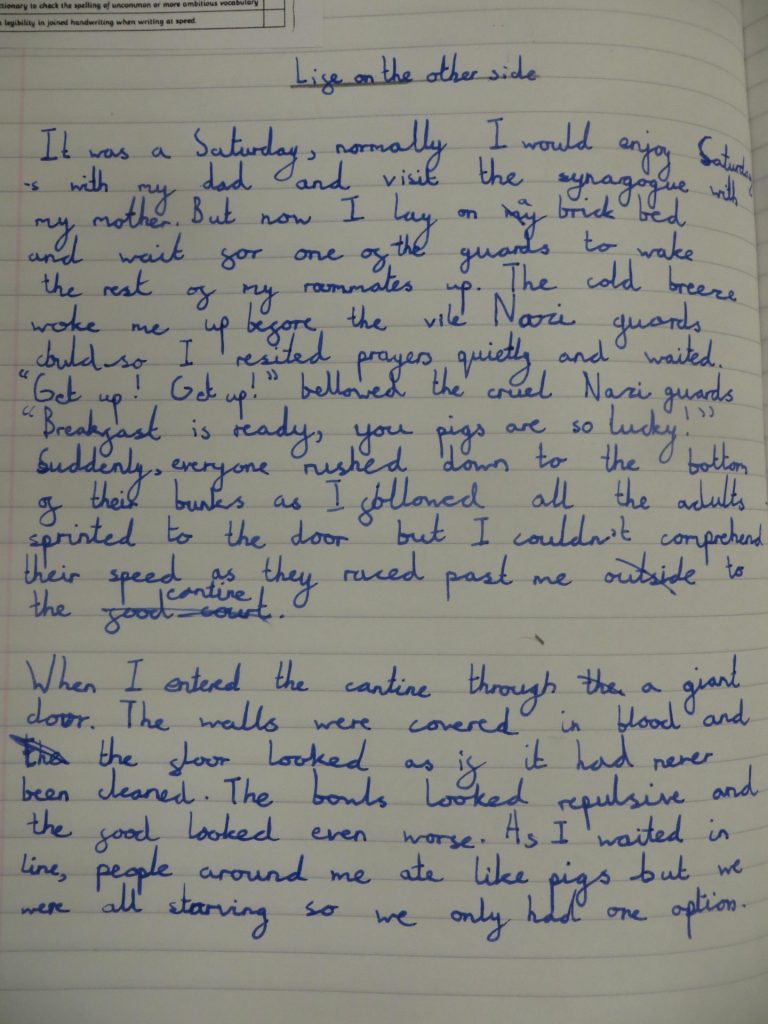 ctionary to check the spelling of uncommon or more ambitious vocabulary
legibility in joined handwriting when writing at speed.
Life on the other side
It was a Saturday, normally I would enjoy Saturday
-s with my dad and visit the synagogue with
my mother. But now I lay on my a brick bed
and wait for one of the guards to wake
the rest of my roommates up. The cold breeze
woke me up before the vile Nazi guards
could so I resited prayers quietly and waited.
"Get up! Get up!" bellowed the cruel Nazi guards
"Breakfast is ready, you pigs are so lucky!"
Suddenly, everyone rushed down to the bottom
of their bunks as I followed all the adults
sprinted to the door but I couldn't comprehend
their speed as they raced past me outside to
the food court cantine.
When I entered the cantine through the a giant
door. The walls were covered in blood and
the the floor looked as if it had never
been cleaned. The bowls looked repulsive and
the food looked even worse. As I waited in
line, people around me ate like pigs but we
were all starving so we only had one option.